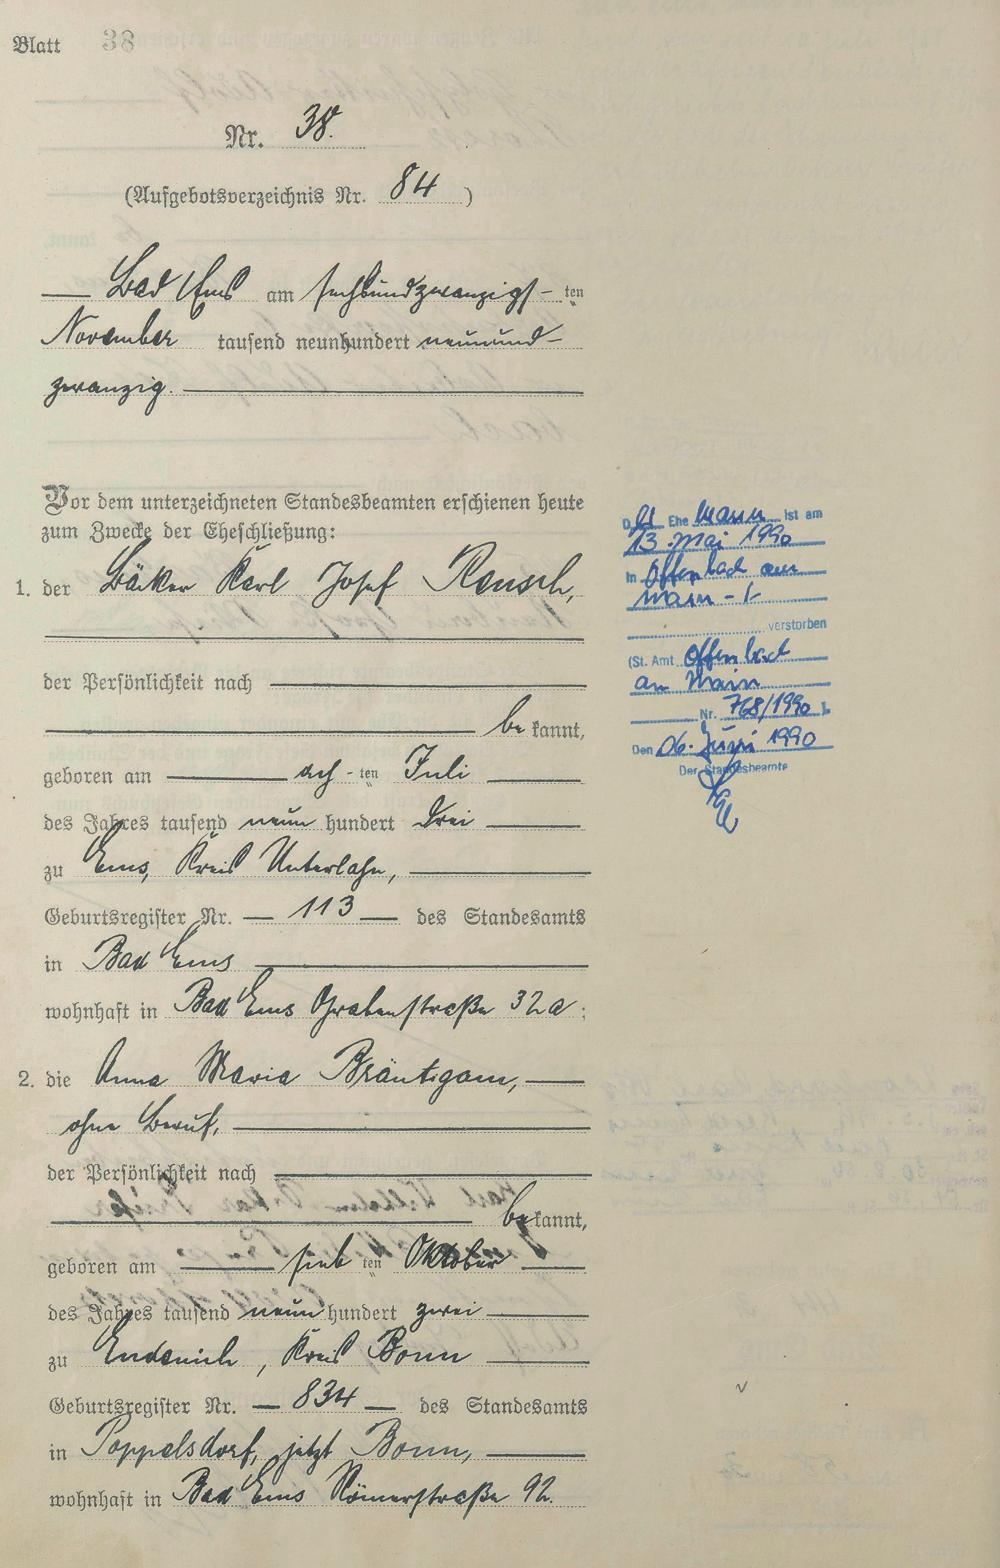 Blatt 38
Nr. 38.
(Aufgebotsverzeichnis Nr. 84)
Bad Ems am sechsundzwanzigsten
November tausend neunhundert neunund-
zwanzig.
Vor dem unterzeichneten Standesbeamten erschienen heute
zum Zwecke der Eheschließung:
1. der Bäcker Karl Josef Reusch,
der Persönlichkeit nach
bekannt,
geboren am achten Juli
des Jahres tausend neun hundert drei
zu Ems, Kreis Unterlahn,
Geburtsregister Nr. 113 des Standesamts
in Bad Ems
wohnhaft in Bad Ems Grabenstraße 32a;
2. die Anna Maria Bräutigam,
ohne Beruf,
der Persönlichkeit nach
bekannt,
geboren am siebten Oktober
des Jahres tausend neun hundert zwei
zu Endenich, Kreis Bonn
Geburtsregister Nr. 834 des Standesamts
in Poppelsdorf, jetzt Bonn,
wohnhaft in Bad Ems Römerstraße 92.
Der Ehemann ist am
13. Mai 1990
in Offenbach am
Main
verstorben
(St. Amt Offenbach
am Main
Nr. 768/1990
Den 06. Juni 1990
Der Standesbeamte